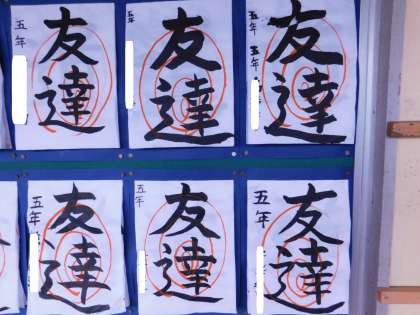 友達
五年
友達
五年
友達
五年
友達
五年
友達
五年
友達
五年